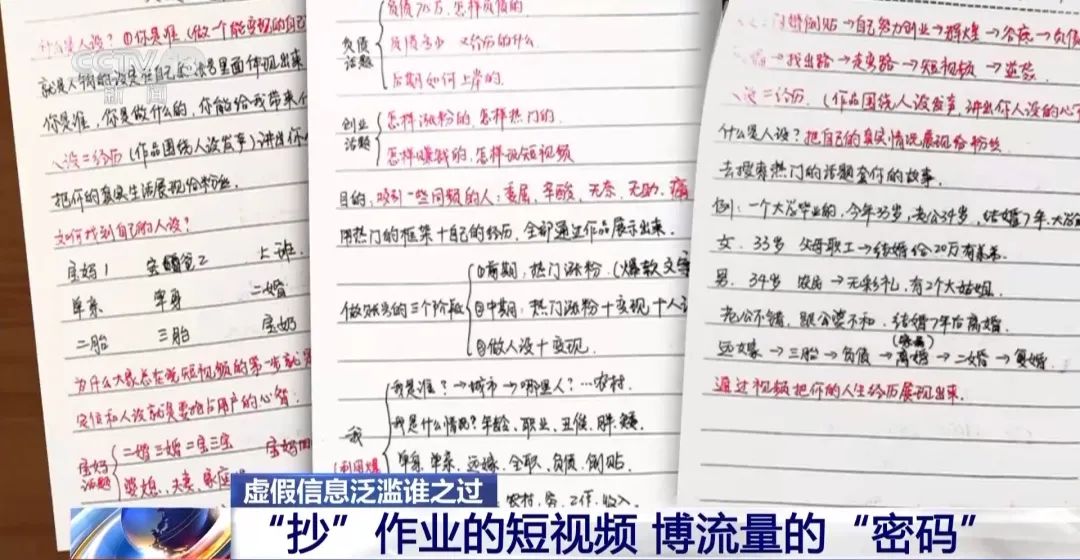 CCTV 13
新闻
什么是人设?①你是谁(做一个能变现的自己
就是人物的设定在自己的账号里面体现出来
你是谁,你是做什么的,你能给我带来什
人设=经历(作品围绕人设发声)讲出你
把你的真实生活展现给粉丝
如何找到自己的人设?
宝妈1 宝爸2 上班
单亲 单身 二婚
二胎 三胎 宝奶
为什么大家总在说短视频的第一步就
定位和人设就是要抢占用户的心智:
宝妈话题
二婚 三婚 二宝三宝 宝妈
婆媳、夫妻、家庭
负债话题
负债70万,怎样负债的
负债多少 又经历的什么
后期如何上岸的.
创业话题
怎样涨粉的,怎样热门的.
怎样赚钱的,怎样做短视频
目的:吸引一些同频的人:委屈、辛酸、无奈、无助、痛
用热门的框架+自己的经历,全部通过作品展示出来.
做账号的三个阶段
①前期:热门涨粉.(爆款文
②中期:热门涨粉+变现+人设
③做人设+变现.
我
我是谁?→城市→哪里人?…农村.
我是什么情况?年龄、职业、丑俊、胖矮.
单身,单亲,远嫁,全职,负债,倒贴.
农村,穷,工作,收入
→自己努力创业→辉煌→谷底→负债
→找出路→走弯路→短视频→逆袭
人设=经历.(作品围绕人设发声,讲出你人设的心
什么是人设?把自己的真实情况展现给粉丝
去搜索热门的话题套你的故事.
例:一个大专毕业的,今年33岁,老公34岁,结婚7年,大
女.33岁 父母职工→结婚给20万存款.
男.34岁 农民→无彩礼,有2个大姑姐.
老公不错,跟公婆不和,结婚7年后离婚.
远嫁→三胎→负债→离婚→二婚→复婚.
通过视频把你的人生经历展现出来.
虚假信息泛滥谁之过
“抄”作业的短视频 博流量的“密码”